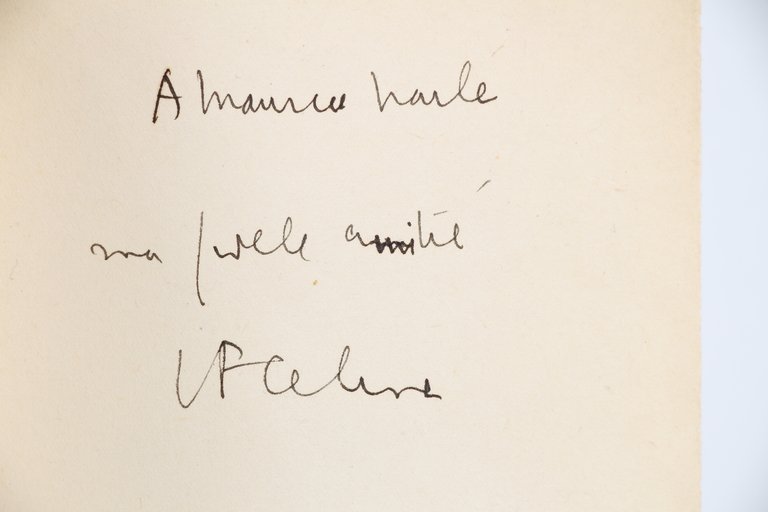 A Maurice
ma fidele amitié
LF Celine